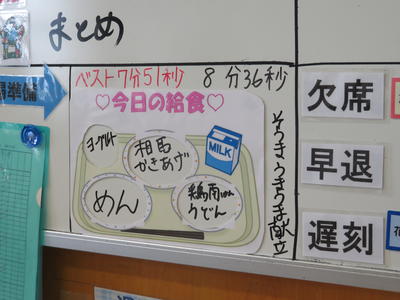 まとめ
準備
ベスト7分51秒 8分36秒
♡今日の給食♡
ヨーグルト
相馬
かきあげ
MILK
めん
うどん
そうまうまうま献立
欠席
早退
遅刻